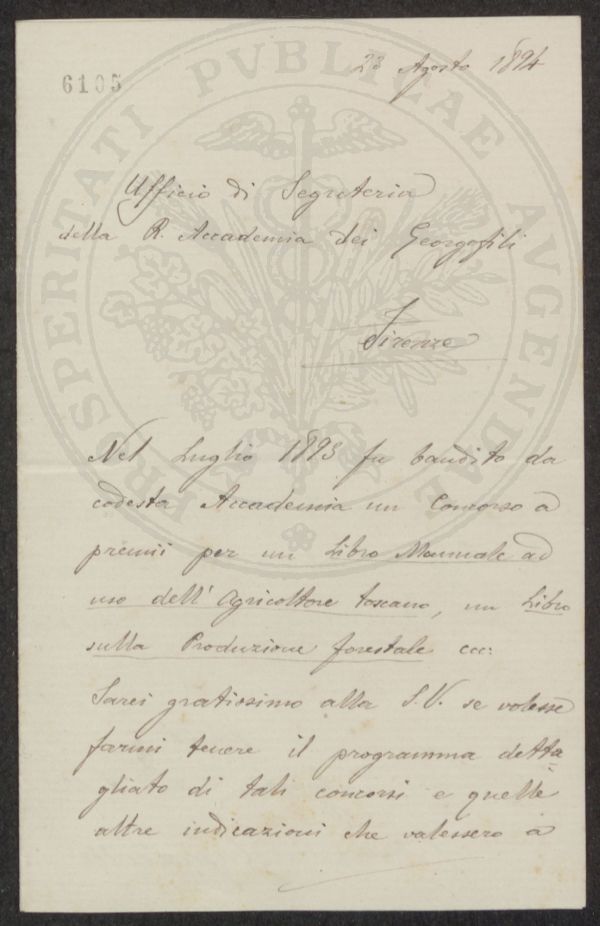 6105
23 Agosto 1894
Ufficio di Segreteria
della R. Accademia dei Georgofili
Firenze
Nel Luglio 1893 fu bandito da
codesta Accademia un Concorso a
premii per un Libro Manuale ad
uso dell'Agricoltore toscano, un Libro
sulla Produzione forestale ecc:
Sarei gratissimo alla S.V. se volesse
farmi tenere il programma detta=
gliato di tali concorsi e quelle
altre indicazioni che valessero a
PROSPERITATI PVBLICAE AVGENDAE